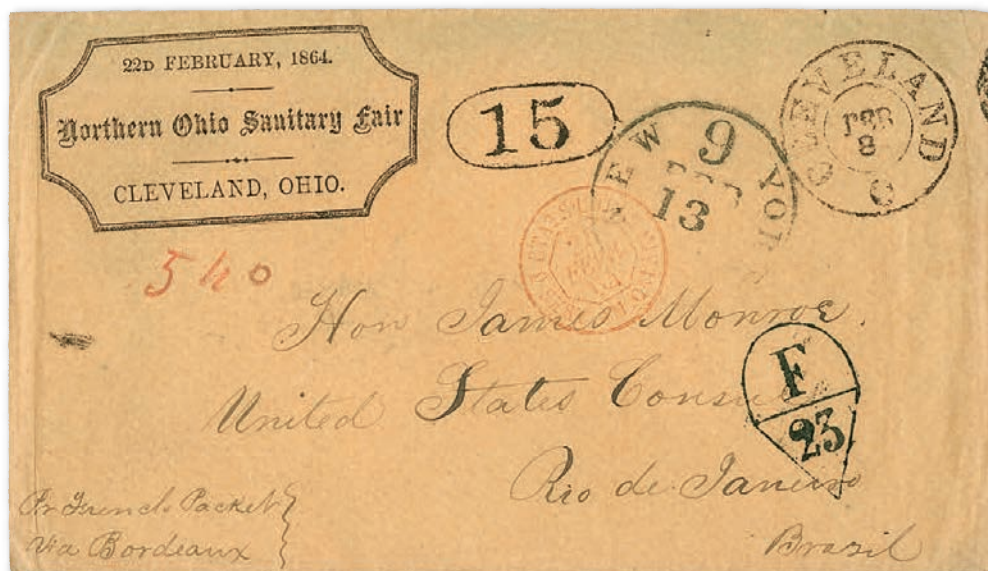 22D FEBRUARY, 1864.
Northern Ohio Sanitary Fair
CLEVELAND, OHIO.
15
NEW YOR
9
13
CLEVELAND O
FEB
8
540
Hon James Monroe.
United States Consul
Rio de Janeiro
Brazil
F
23
Pr French Packet
Via Bordeaux